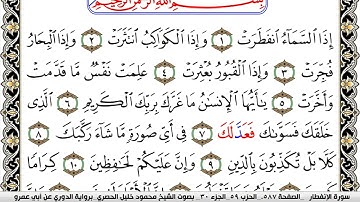 بِسْمِ ٱللَّهِ ٱلرَّحْمَٰنِ ٱلرَّحِيمِ
إِذَا ٱلسَّمَآءُ ٱنفَطَرَتْ ١ وَإِذَا ٱلْكَوَاكِبُ ٱنتَثَرَتْ ٢ وَإِذَا ٱلْبِحَارُ
فُجِّرَتْ ٣ وَإِذَا ٱلْقُبُورُ بُعْثِرَتْ ٤ عَلِمَتْ نَفْسٌ مَّا قَدَّمَتْ
وَأَخَّرَتْ ٥ يَٰٓأَيُّهَا ٱلْإِنسَٰنُ مَا غَرَّكَ بِرَبِّكَ ٱلْكَرِيمِ ٦ ٱلَّذِى
خَلَقَكَ فَسَوَّىٰكَ فَعَدَّلَكَ ٧ فِىٓ أَىِّ صُورَةٍ مَّا شَآءَ رَكَّبَكَ ٨
كَلَّا بَلْ تُكَذِّبُونَ بِٱلدِّينِ ٩ وَإِنَّ عَلَيْكُمْ لَحَٰفِظِينَ ١٠ كِرَامًا
سورة الإنفطار _ الصفحة ٥٨٧ _ الحزب ٥٩ _ الجزء ٣٠ _ بصوت الشيخ محمود خليل الحصري _ برواية الدوري عن أبي عمرو